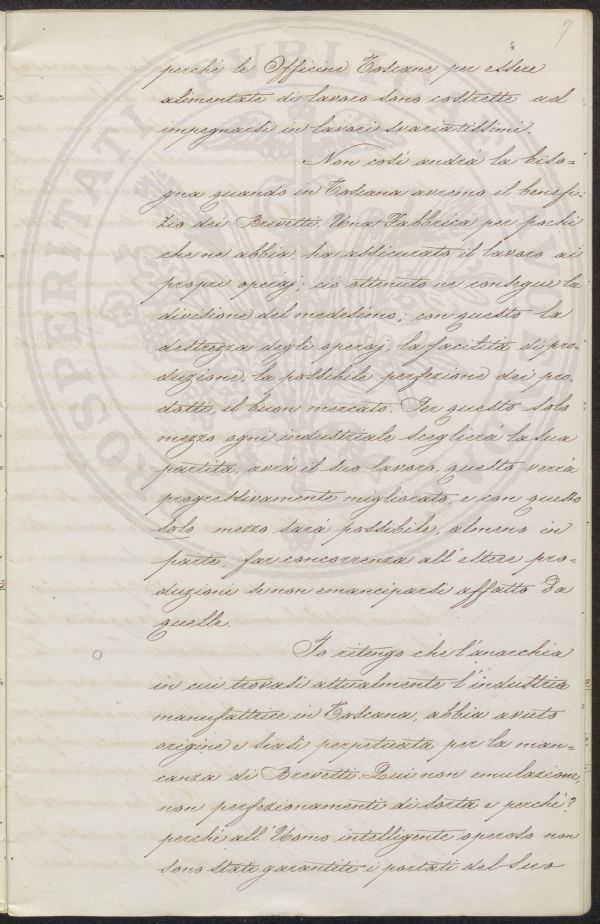 7
perchè le Officine Toscane per essere
alimentate di lavoro sono costrette ad
impegnarsi in lavori svariatissimi.
Non così andrà la biso-
gna quando in Toscana avremo il benefi-
zio dei Brevetti. Una Fabbrica per pochi
che ne abbia, ha assicurato il lavoro ai
propri operaj; ciò ottenuto ne consegue la
divisione del medesimo; con questo la
destrezza degli operaj, la facilità di pro-
duzione, la possibile perfezione dei pro-
dotti, il buon mercato. Per questo solo
mezzo ogni industriale sceglierà la sua
partita, avrà il suo lavoro, questo verrà
progressivamente migliorato, e con questo
solo mezzo sarà possibile, almeno in
parte, far concorrenza all'estere pro-
duzioni se non emanciparsi affatto da
quelle.
Io ritengo che l'anarchia
in cui trovasi attualmente l'industria
manufattrice in Toscana, abbia avuto
origine e siasi perpetuata per la man-
canza di Brevetti. Qui non emulazione,
non perfezionamenti di sorta e perchè?
perchè all'Uomo intelligente operoso non
sono stati garantiti i portati del suo
PROSPERITATI PUBLICAE